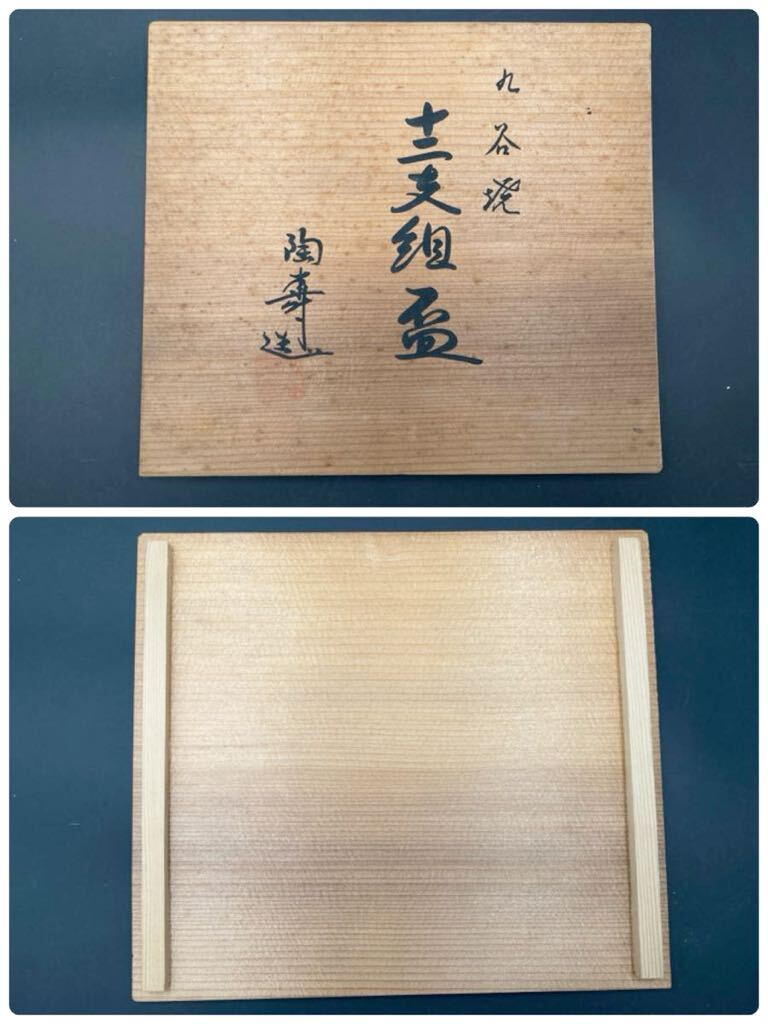 九谷焼
十二支組盃
陶寿造